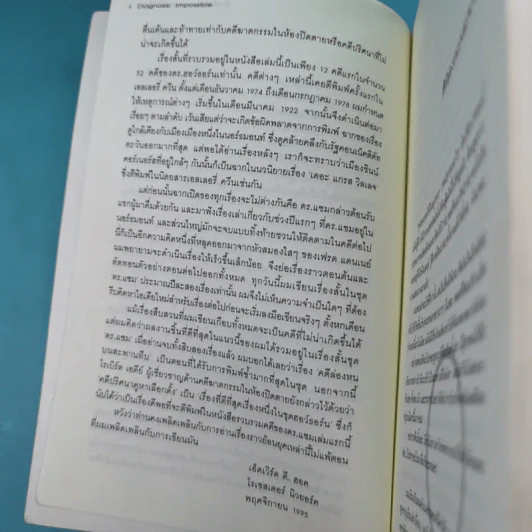 4 Diagnosis: Impossible
ตื่นเต้นและท้าทายเท่ากับคดีฆาตกรรมในห้องปิดตายหรือคดีปริศนาที่ไม่
น่าจะเกิดขึ้นได้
เรื่องสั้นที่รวบรวมอยู่ในหนังสือเล่มนี้เป็นเพียง 12 คดีแรกในจำนวน
52 คดีของดร.ฮอว์ธอร์นเท่านั้น คดีต่างๆ เหล่านี้เคยตีพิมพ์ครั้งแรกใน
เอลเลอรี่ ควีน ตั้งแต่เดือนธันวาคม 1974 ถึงเดือนกรกฎาคม 1978 ผมกำหนด
ให้เหตุการณ์ต่างๆ เริ่มขึ้นในเดือนมีนาคม 1922 จากนั้นจึงดำเนินต่อมา
เรื่อยๆ ตามลำดับ เว้นเสียแต่ว่าจะเกิดข้อผิดพลาดจากการพิมพ์ ฉากของเรื่อง
ดูใกล้เคียงกับเมืองเมืองหนึ่งในนอร์ธมอนท์ ซึ่งดูคล้ายคลึงกับรัฐคอนเน็ตติคัท
ตะวันออกมากที่สุด แต่พอได้อ่านเรื่องหลังๆ เราก็จะทราบว่าเมืองชินน์
คอร์เนอร์สที่อยู่ใกล้ๆ กันนั้นก็เป็นฉากในนวนิยายเรื่อง 'เดอะ แกรส วิลเลจ'
ซึ่งตีพิมพ์ในนิตยสารเอลเลอรี่ ควีนเช่นกัน
แต่ก่อนนั้นฉากเปิดของทุกเรื่องจะไม่ต่างกันคือ ดร.แซมกล่าวต้อนรับ
แขกผู้มาดื่มด้วยกัน และมาฟังเรื่องเล่าเกี่ยวกับช่วงปีแรกๆ ที่ดร.แซมอยู่ใน
นอร์ธมอนท์ และส่วนใหญ่มักจะจบแบบทิ้งท้ายชวนให้ติดตามในคดีต่อไป
นี่ก็เป็นอีกความคิดหนึ่งที่หลุดออกมาจากหัวสมองใสๆ ของเฟรด แดนเนย์
ผมพยายามจะดำเนินเรื่องให้เร็วขึ้นเล็กน้อย จึงย่อเรื่องราวตอนต้นและ
ตัดทอนตัวอย่างตอนต่อไปออกทั้งหมด ทุกวันนี้ผมเขียนเรื่องสั้นในชุด
'ดร.แซม' ประมาณปีละสองเรื่องเท่านั้น ผมจึงไม่เห็นความจำเป็นใดๆ ที่ต้อง
รีบคิดหาไอเดียใหม่สำหรับเรื่องต่อไปก่อนจะเริ่มลงมือเขียนจริงๆ ตั้งหกเดือน
แม้เรื่องสืบสวนที่ผมเขียนเกือบทั้งหมดจะเป็นคดีที่ไม่น่าเกิดขึ้นได้
แต่ผมคิดว่าผลงานชิ้นที่ดีที่สุดในแนวนี้ของผมได้รวมอยู่ในเรื่องสั้นชุด
'ดร.แซม' เมื่ออ่านจบทั้งสิบสองเรื่องแล้ว ผมบอกได้เลยว่าเรื่อง 'คดีล่องหน
บนสะพานทึบ' เป็นตอนที่ได้รับการพิมพ์ซ้ำมากที่สุดในชุด นอกจากนี้
โรเบิร์ต เอดีย์ ผู้เชี่ยวชาญด้านคดีฆาตกรรมในห้องปิดตายยังกล่าวไว้ด้วยว่า
'คดีปริศนาคูหาเลือกตั้ง' เป็น 'เรื่องที่ดีที่สุดเรื่องหนึ่งในชุดฮอว์ธอร์น' ซึ่งก็
นับได้ว่าเป็นเรื่องดีพอที่จะตีพิมพ์ในหนังสือรวบรวมคดีของดร.แซมเล่มแรกนี้
หวังว่าท่านคงเพลิดเพลินกับการอ่านเรื่องราวย้อนยุคเหล่านี้ไม่แพ้ตอน
ที่ผมเพลิดเพลินกับการเขียนมัน
เอ็ดเวิร์ด ดี. ฮอค
โรเชสเตอร์ นิวยอร์ค
พฤศจิกายน 1995